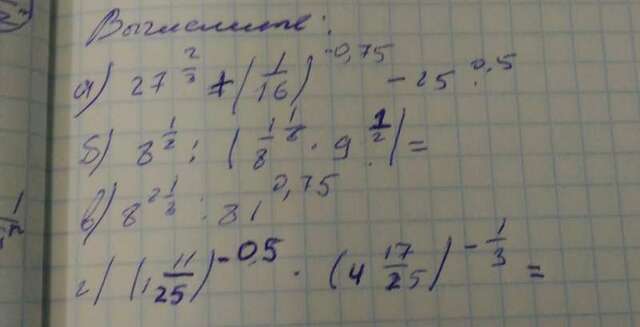 Вычислите:
а) 27^(2/3) + (1/16)^(-0,75) - 25^(0,5)
б) 8^(1/2) : (1/8^(1/8) · 9^(1/2)) =
в) 8^(2 1/3) : 81^(0,75)
г) (1 11/25)^(-0,5) · (4 17/25)^(-1/3) =